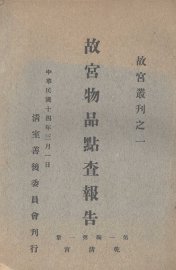 故宮叢刊之一
故宮物品點查報告
第一編第一冊
乾清宮
中華民國十四年三月一日
清室善後委員會刊行